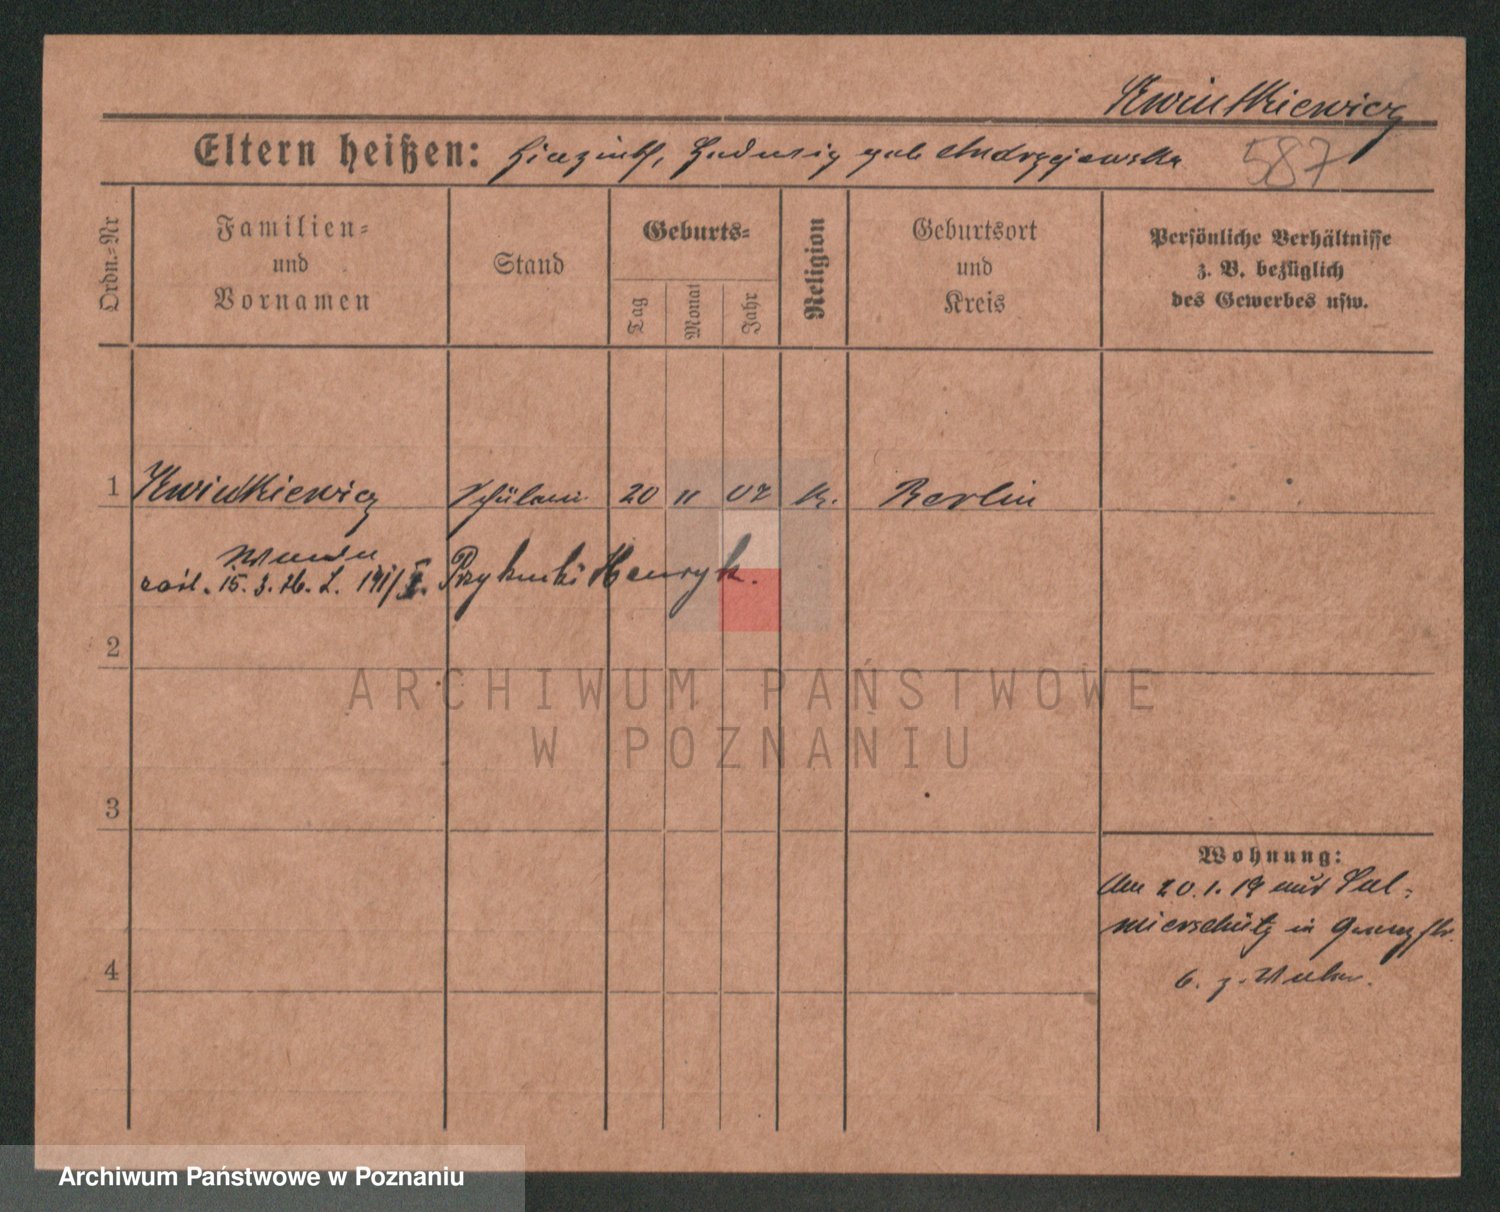 Kwintkiewicz
Eltern heißen: Hiazinth, Hedwig geb Andrzejewska
587
Ordn.=Nr
Familien=
und
Vornamen
Stand
Geburts=
Tag
Monat
Jahr
Religion
Geburtsort
und
Kreis
Persönliche Verhältnisse
z. B. bezüglich
des Gewerbes usw.
1 Kwintkiewicz Schülerin 20 11 07 K. Berlin
Wanda
15. 3. 26. L. 191/I. Henryk.
2
3
4
Wohnung:
Am 20.1.19 aus Sal=
mierschütz in
6. z.
ARCHIWUM PAŃSTWOWE
W POZNANIU
Archiwum Państwowe w Poznaniu